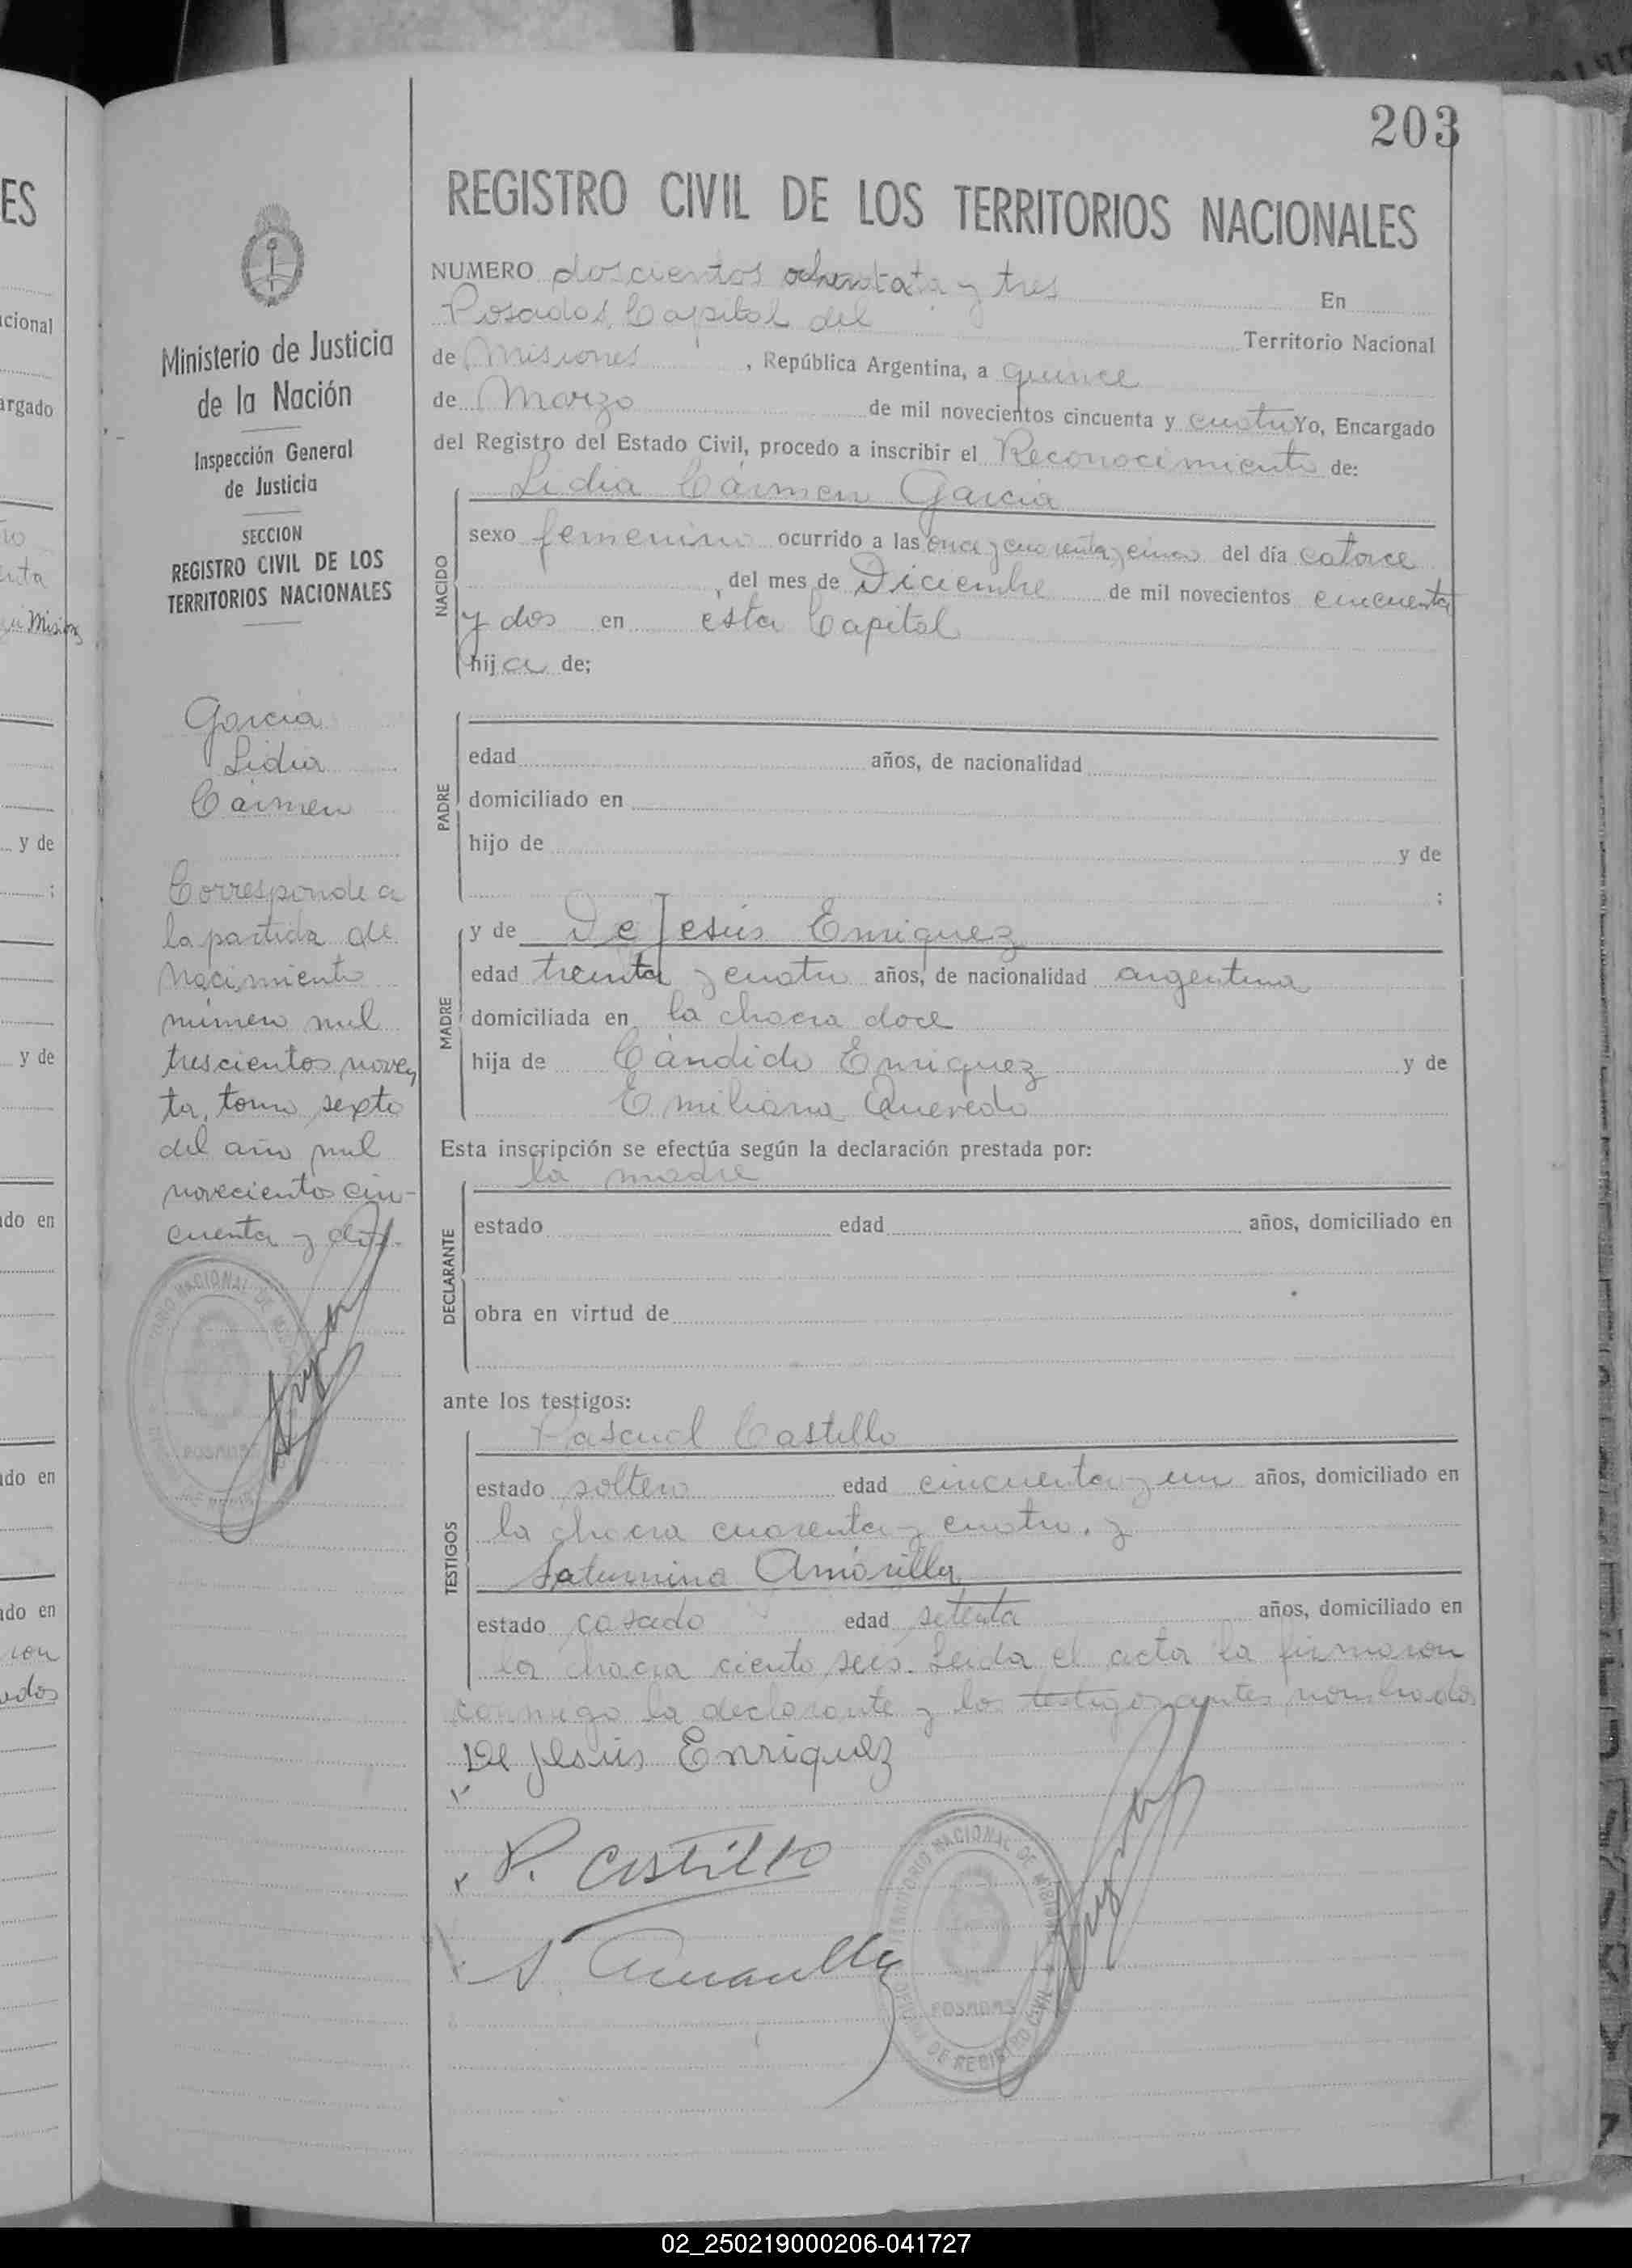 203
REGISTRO CIVIL DE LOS TERRITORIOS NACIONALES
NUMERO doscientos ochentata y tres En
Posadas, Capital del Territorio Nacional
de Misiones, República Argentina, a quince
de Marzo de mil novecientos cincuenta y cuatro Yo, Encargado
del Registro del Estado Civil, procedo a inscribir el Reconocimiento de:
NACIDO
Lidia Cármen García
sexo femenino ocurrido a las once y cuarenta y cinco del día catorce
del mes de Diciembre de mil novecientos cincuenta
y dos en esta Capital
hija de;
PADRE
edad años, de nacionalidad
domiciliado en
hijo de y de
;
MADRE
y de De Jesús Enriquez
edad treinta y cuatro años, de nacionalidad argentina
domiciliada en la chacra doce
hija de Cándido Enriquez y de
Emiliana Quevedo
Esta inscripción se efectúa según la declaración prestada por:
la madre
DECLARANTE
estado edad años, domiciliado en
obra en virtud de
ante los testigos:
TESTIGOS
Pascual Castillo
estado soltero edad cincuenta y un años, domiciliado en
la chacra cuarenta y cuatro. y
Saturnino Amarilla
estado casado edad setenta años, domiciliado en
la chacra ciento seis. Leida el acta la firmaron
conmigo la declarante y los testigos antes nombrados
De Jesús Enriquez
P. Castillo
S. Amarilla
TERRITORIO NACIONAL DE MISIONES
POSADAS
OFICINA DE REGISTRO CIVIL
Ministerio de Justicia
de la Nación
Inspección General
de Justicia
SECCION
REGISTRO CIVIL DE LOS
TERRITORIOS NACIONALES
García
Lidia
Cármen
Corresponde a
la partida de
Nacimiento
número mil
trescientos noven
ta, tomo sexto
del año mil
novecientos cin-
cuenta y dos.
TERRITORIO NACIONAL DE
POSADAS
ES
acional
argado
enta
Mision
y de
;
y de
do en
do en
do en
ron
ados
02_250219000206-041727